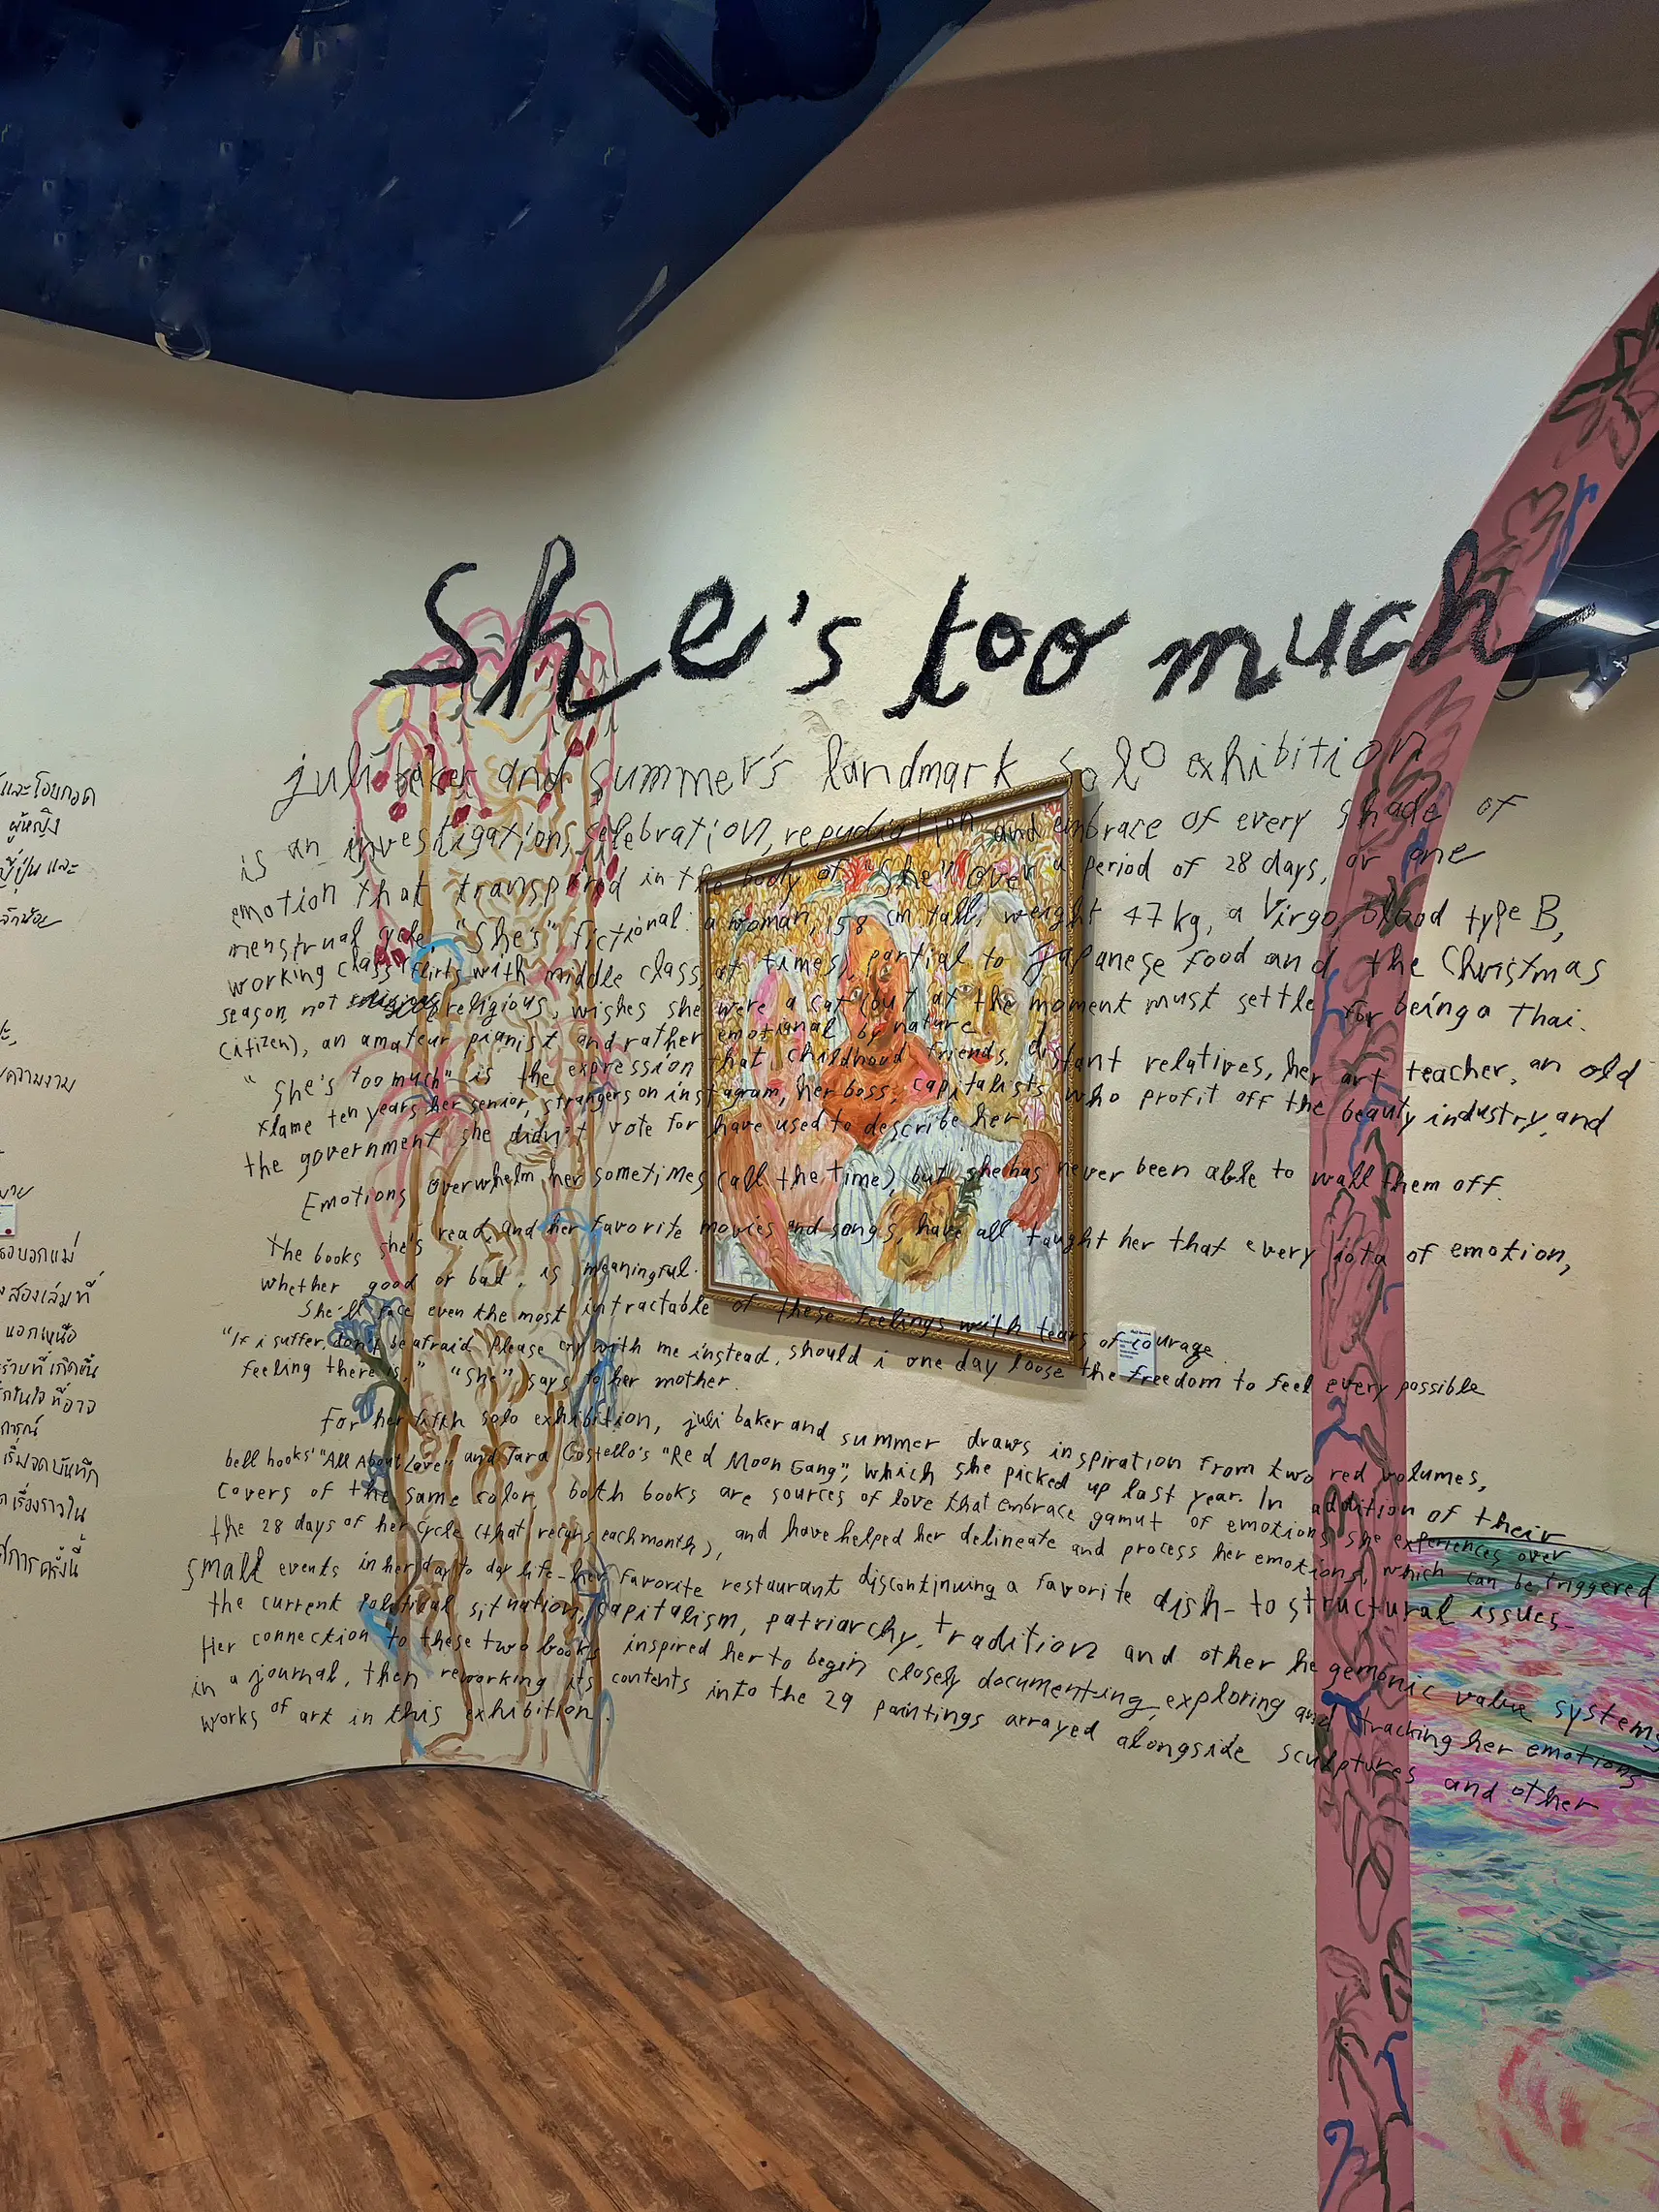 และโอบกอด
ผู้หญิง
ญี่ปุ่น และ
เล็กน้อย
ความงาม
บอกแม่
สองเล่มที่
นอกเหนือ
ร้ายที่เกิดขึ้น
ในใจ ที่อาจ
เริ่มจดบันทึก
เรื่องราวใน
การครั้งนี้
She's too much
juli baker and summer's landmark solo exhibition
is an investigation, celebration, repudiation and embrace of every shade of
emotion that transpired in the body of "she" over a period of 28 days, or one
menstrual cycle. "She's" fictional: a woman, 158 cm tall, weight 47 kg, a Virgo, blood type B,
working class (flirts with middle class at times), partial to Japanese food and the Christmas
season, not religious, wishes she were a cat (but at the moment must settle for being a Thai
citizen), an amateur pianist and rather emotional by nature.
"She's too much" is the expression that childhood friends, distant relatives, her art teacher, an old
flame ten years her senior, strangers on instagram, her boss, capitalists who profit off the beauty industry, and
the government she didn't vote for have used to describe her
Emotions overwhelm her sometimes (all the time), but she has never been able to wall them off.
The books she's read, and her favorite movies and songs, have all taught her that every iota of emotion,
whether good or bad, is meaningful.
She'll face even the most intractable of these feelings with tears of courage.
"If i suffer, don't be afraid. Please cry with me instead, should i one day loose the freedom to feel every possible
feeling there is," "She" says to her mother.
For her fifth solo exhibition, juli baker and summer draws inspiration from two red volumes,
bell hooks' "All About Love" and Tara Costello's "Red Moon Gang", which she picked up last year. In addition of their
covers of the same color, both books are sources of love that embrace gamut of emotions she experiences over
the 28 days of her cycle (that recurs each month), and have helped her delineate and process her emotions, which can be triggered
small events in her day to day life – her favorite restaurant discontinuing a favorite dish – to structural issues –
the current political situation, capitalism, patriarchy, tradition and other hegemonic value systems
Her connection to these two books inspired her to begin closely documenting, exploring and tracking her emotions
in a journal, then reworking its contents into the 29 paintings arrayed alongside sculptures and other
works of art in this exhibition.